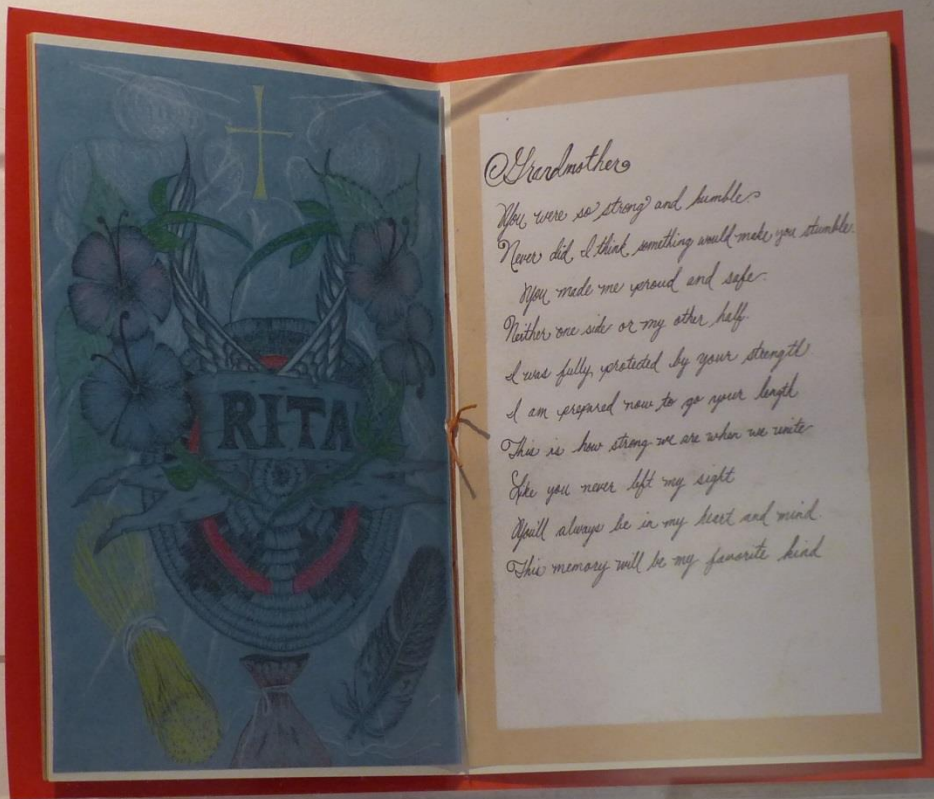 RITA
Grandmother
You were so strong and humble.
Never did I think something would make you stumble.
You made me proud and safe.
Neither one side or my other half.
I was fully, protected by your strength
I am prepared now to go your length
This is how strong we are when we unite
Like you never left my sight
You'll always be in my heart and mind
This memory will be my favorite kind